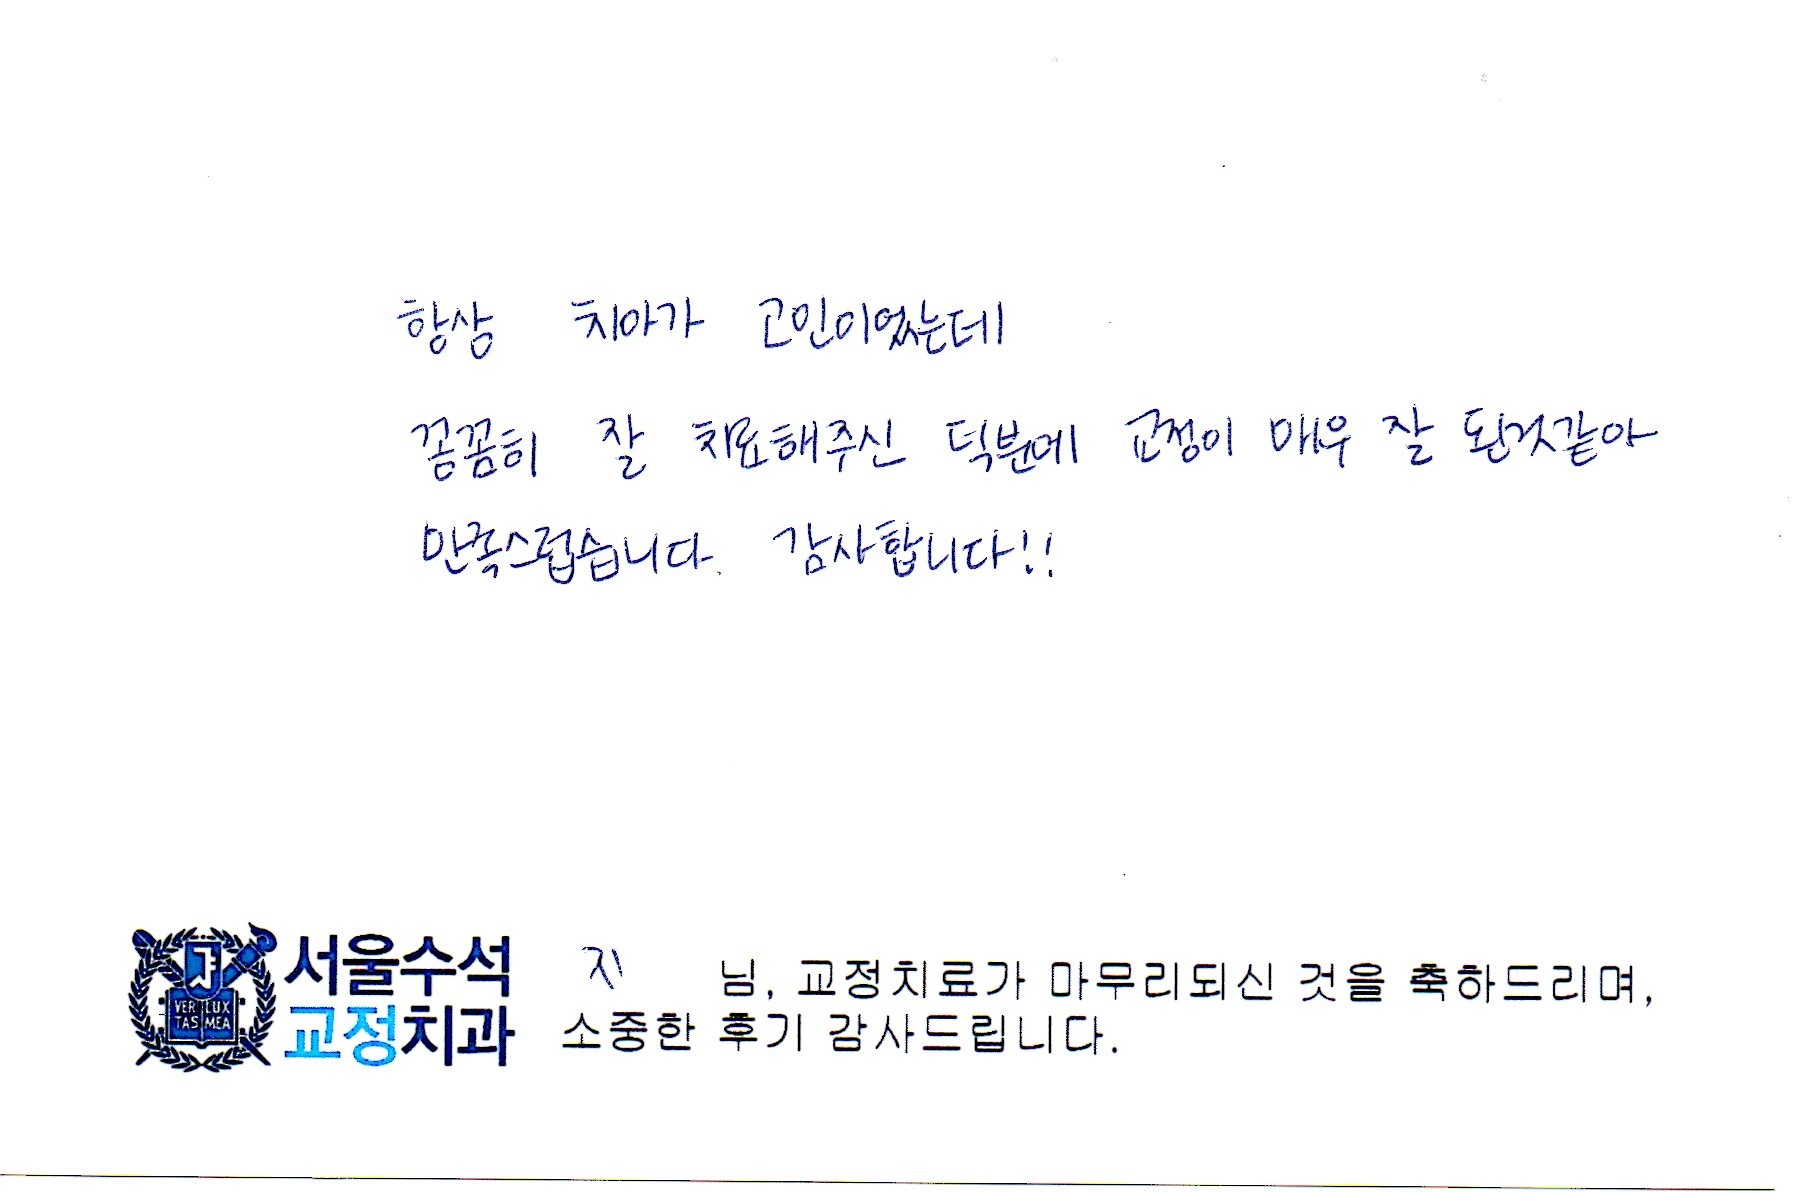 항상 치아가 고민이었는데
꼼꼼히 잘 치료해주신 덕분에 교정이 매우 잘 된것같아
만족스럽습니다. 감사합니다!!
서울수석
교정치과
VERI LUX
TAS MEA
지 님, 교정치료가 마무리되신 것을 축하드리며,
소중한 후기 감사드립니다.